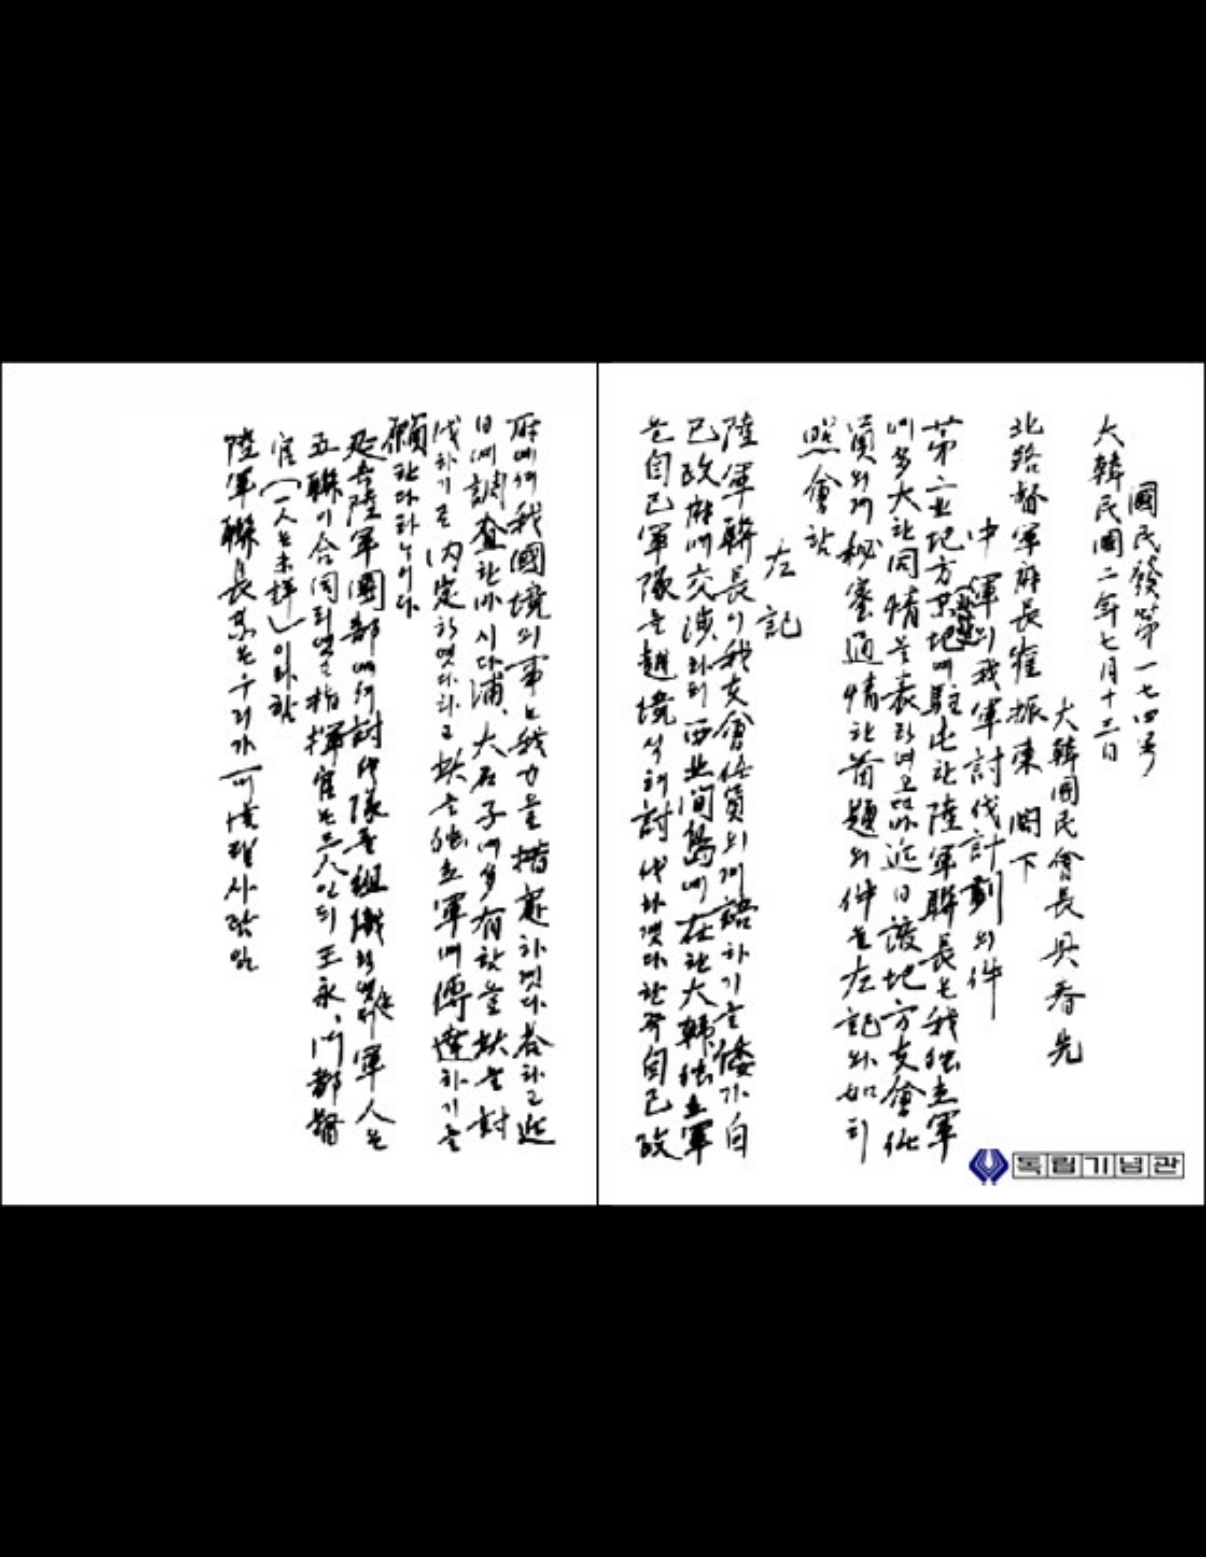 國民發第一七四号
大韓民國二年七月十三日
大韓國民會長 具春先
北路督軍府長 崔振東 閣下
中軍의 我軍討伐計劃의 件
第二北地方 駐屯한 陸軍聯長은 我独立軍
에 多大한 同情을 表하여 오던바 近日 該地方支會任
員의게 秘密通情한 首題의 件을 左記와 如히
照會함
左記
陸軍聯長이 我支會任員의게 語하기를 倭가 自
己政府에 交涉하되 西北間島에 在한 大韓独立軍
은 自己軍隊를 越境식혀 討伐하겟다 한즉 自己政
府에셔 我國境의 事는 我力을 措處하겟다 答하고 近
日에 調査한바 시다浦、大石子에 多有함을 故로 討
伐하기로 内定하엿다 하고 故로 独立軍에 傳達하기를
願한다 하누이다
延吉陸軍團部에셔 討伐隊를 組織하엿는대 軍人은
五聯이 合同되엿고 指揮官은 三人인대 王永、 都督
官(一人은 未詳)이라 함
陸軍聯長 은 우리가 사람임
독립기념관